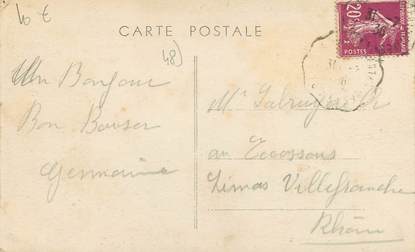 10 €
CARTE POSTALE
48)
20c
POSTES
Un Bonjour
Bon Baiser
Germaine
Mr
au Ecossons
Limas Villefranche
Rhône